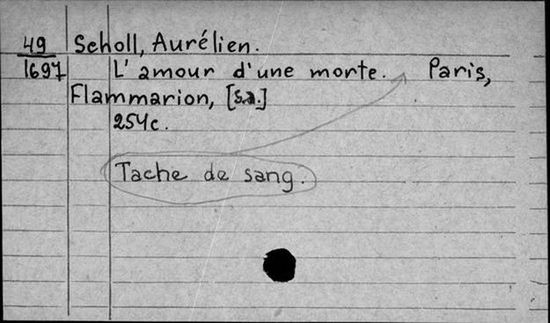 49 Scholl, Aurélien.
1697 L'amour d'une morte. Paris,
Flammarion, [s.a.]
254c.
Tache de sang.